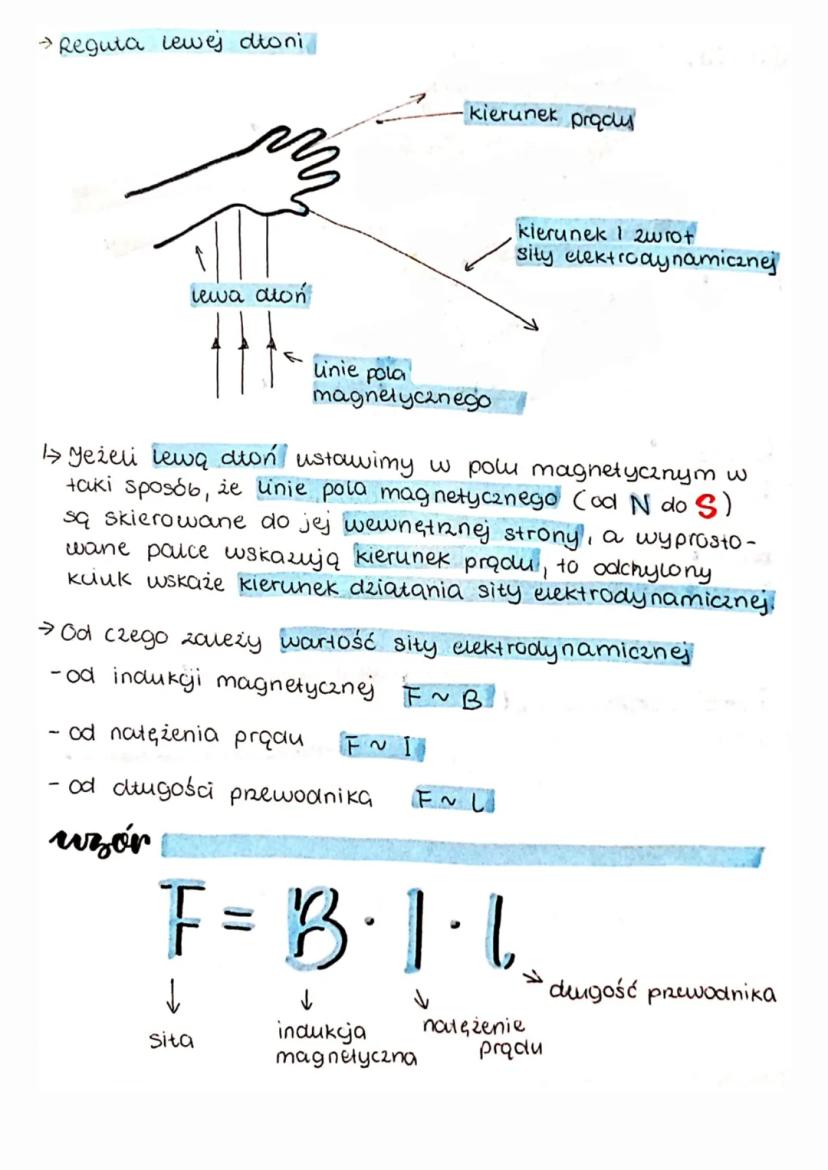 → Reguła lewej dłoni
kierunek prądu
kierunek i zwrot
siły elektrodynamicznej
lewa dłoń
linie pola
magnetycznego
↳ Jeżeli lewą dłoń ustawimy w polu magnetycznym w
taki sposób, że linie pola magnetycznego (od N do S)
są skierowane do jej wewnętrznej strony, a wyprosto-
wane palce wskazują kierunek prądu, to odchylony
kciuk wskaże kierunek działania siły elektrodynamicznej.
→ Od czego zależy wartość siły elektrodynamicznej
- od indukcji magnetycznej F ~ B
- od natężenia prądu F ~ I
- od długości przewodnika F ~ l
wzór
F = B · I · l
długość przewodnika
siła
indukcja
magnetyczna
natężenie
prądu